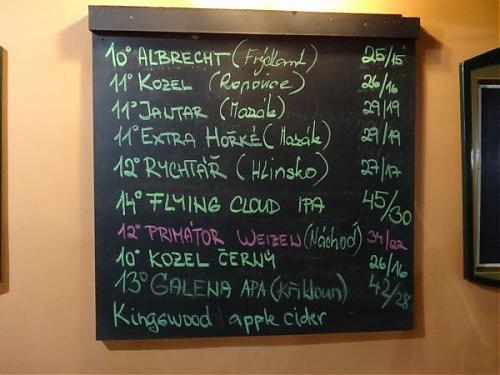 10° ALBRECHT (Frýdlant) 25/15
11° KOZEL (Popovice) 26/16
11° JANTAR (Mazák) 29/19
11° EXTRA HOŘKÉ (Mazák) 29/19
12° RYCHTÁŘ (Hlinsko) 27/17
14° FLYING CLOUD IPA 45/30
12° PRIMÁTOR WEIZEN (Náchod) 34/22
10° KOZEL ČERNÝ 26/16
13° GALENA APA (Křikloun) 42/28
Kingswood apple cider